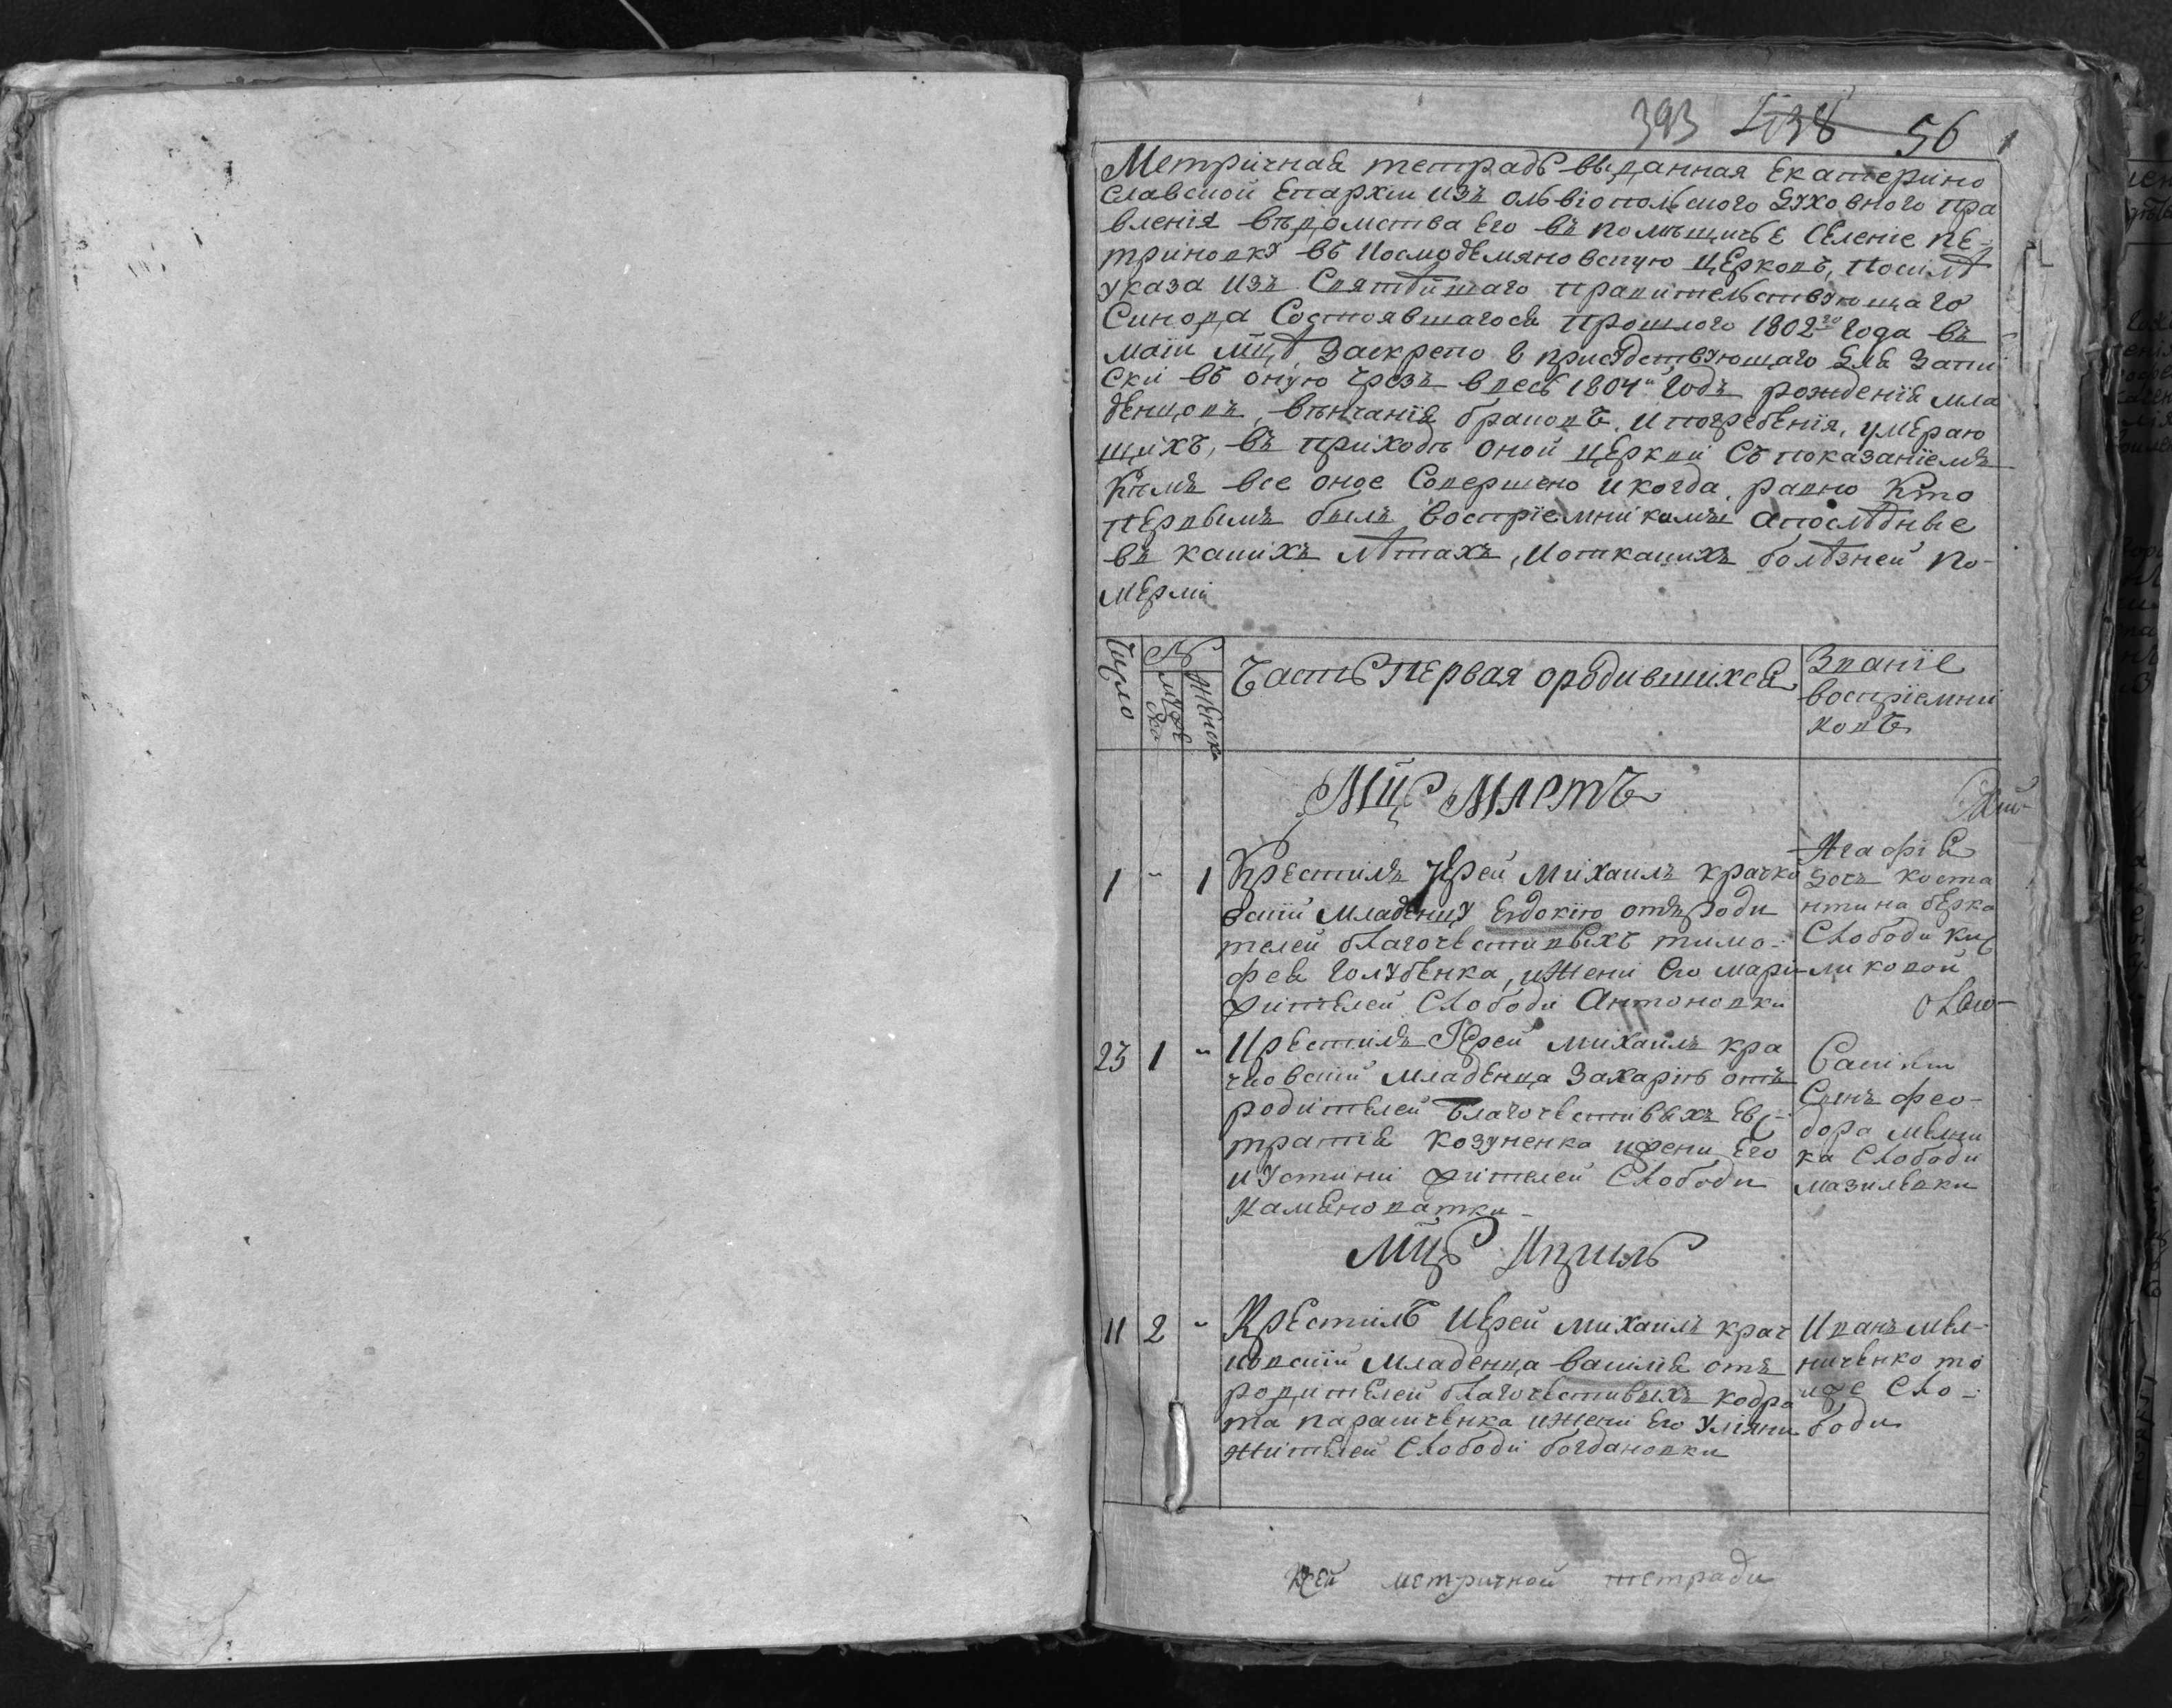 393 438 56 1
Метричная тетрадь выданная Екатерино
славской Епархіи изъ ольвіопольского духовного пра
вленія вѣдомства Его въ помѣщичье селеніе пе-
триновку въ Космодемяновскую церковъ, посилѣ
указа изъ Святѣйшаго правительствующаго
Синода Состоявшагося прошлого 1802го года въ
маіи мцѣ заскрепою присудствующаго для запи
ски въ оную чрезъ весь 1804й годъ рожденія мла
денцовъ, вѣнчанія браковъ, и погребенія, умераю
щихъ, въ приходѣ оной церкви Съ показаніемъ
Кѣмъ все оное Совершено и когда, равно Кто
первымъ былъ воспріемникомъ а послѣдные
въ какихъ лѣтахъ, и от какихъ болѣзней по-
мерли
Число
№
мужеска
женска
Часть первая о родившихся
Званіе
воспріемни
ковъ
Мцъ Мартъ
1 " 1
Крестилъ Іерей Михаилъ крачко
вскій младеницу Евдокію отъ роди
телей благочестивыхъ тимо-
фея голубенка, и жени Его мари
жителей Слободи Антоновки
Агафія
дочъ коста
нтина берка
Слободи ки
ликовой
23 1 "
Крестилъ Іерей михаилъ кра
чковскій младенца Захарію отъ
родителей благочестивыхъ Ев-
тратія козуненка и жени Его
иустини жителей Слободи
Каменоватки-
Синъ фео-
дора мелни
ка Слободи
мазилевки
Мцъ Априль
11 2 "
Крестилъ Иерей михаилъ крач
ковскій младенца василія отъ
родителей благочестивыхъ кодра
та парашченка и жени Его Уліяни
жителей Слободи богдановки
Иванъ мел-
ниченко то
иже Сло-
боди
сей метричной тетради